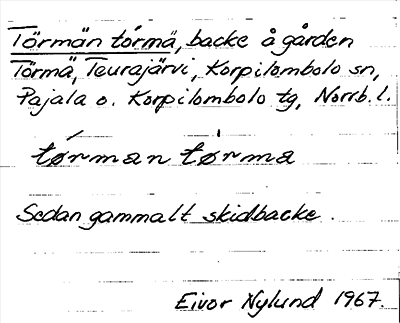 Törmän törmä, backe å gården
Törmä, Teurajärvi, Korpilombolo sn,
Pajala o. Korpilombolo tg, Norrb. l.
tǿrman tǿrma
Sedan gammalt skidbacke.
Eivor Nylund 1967.